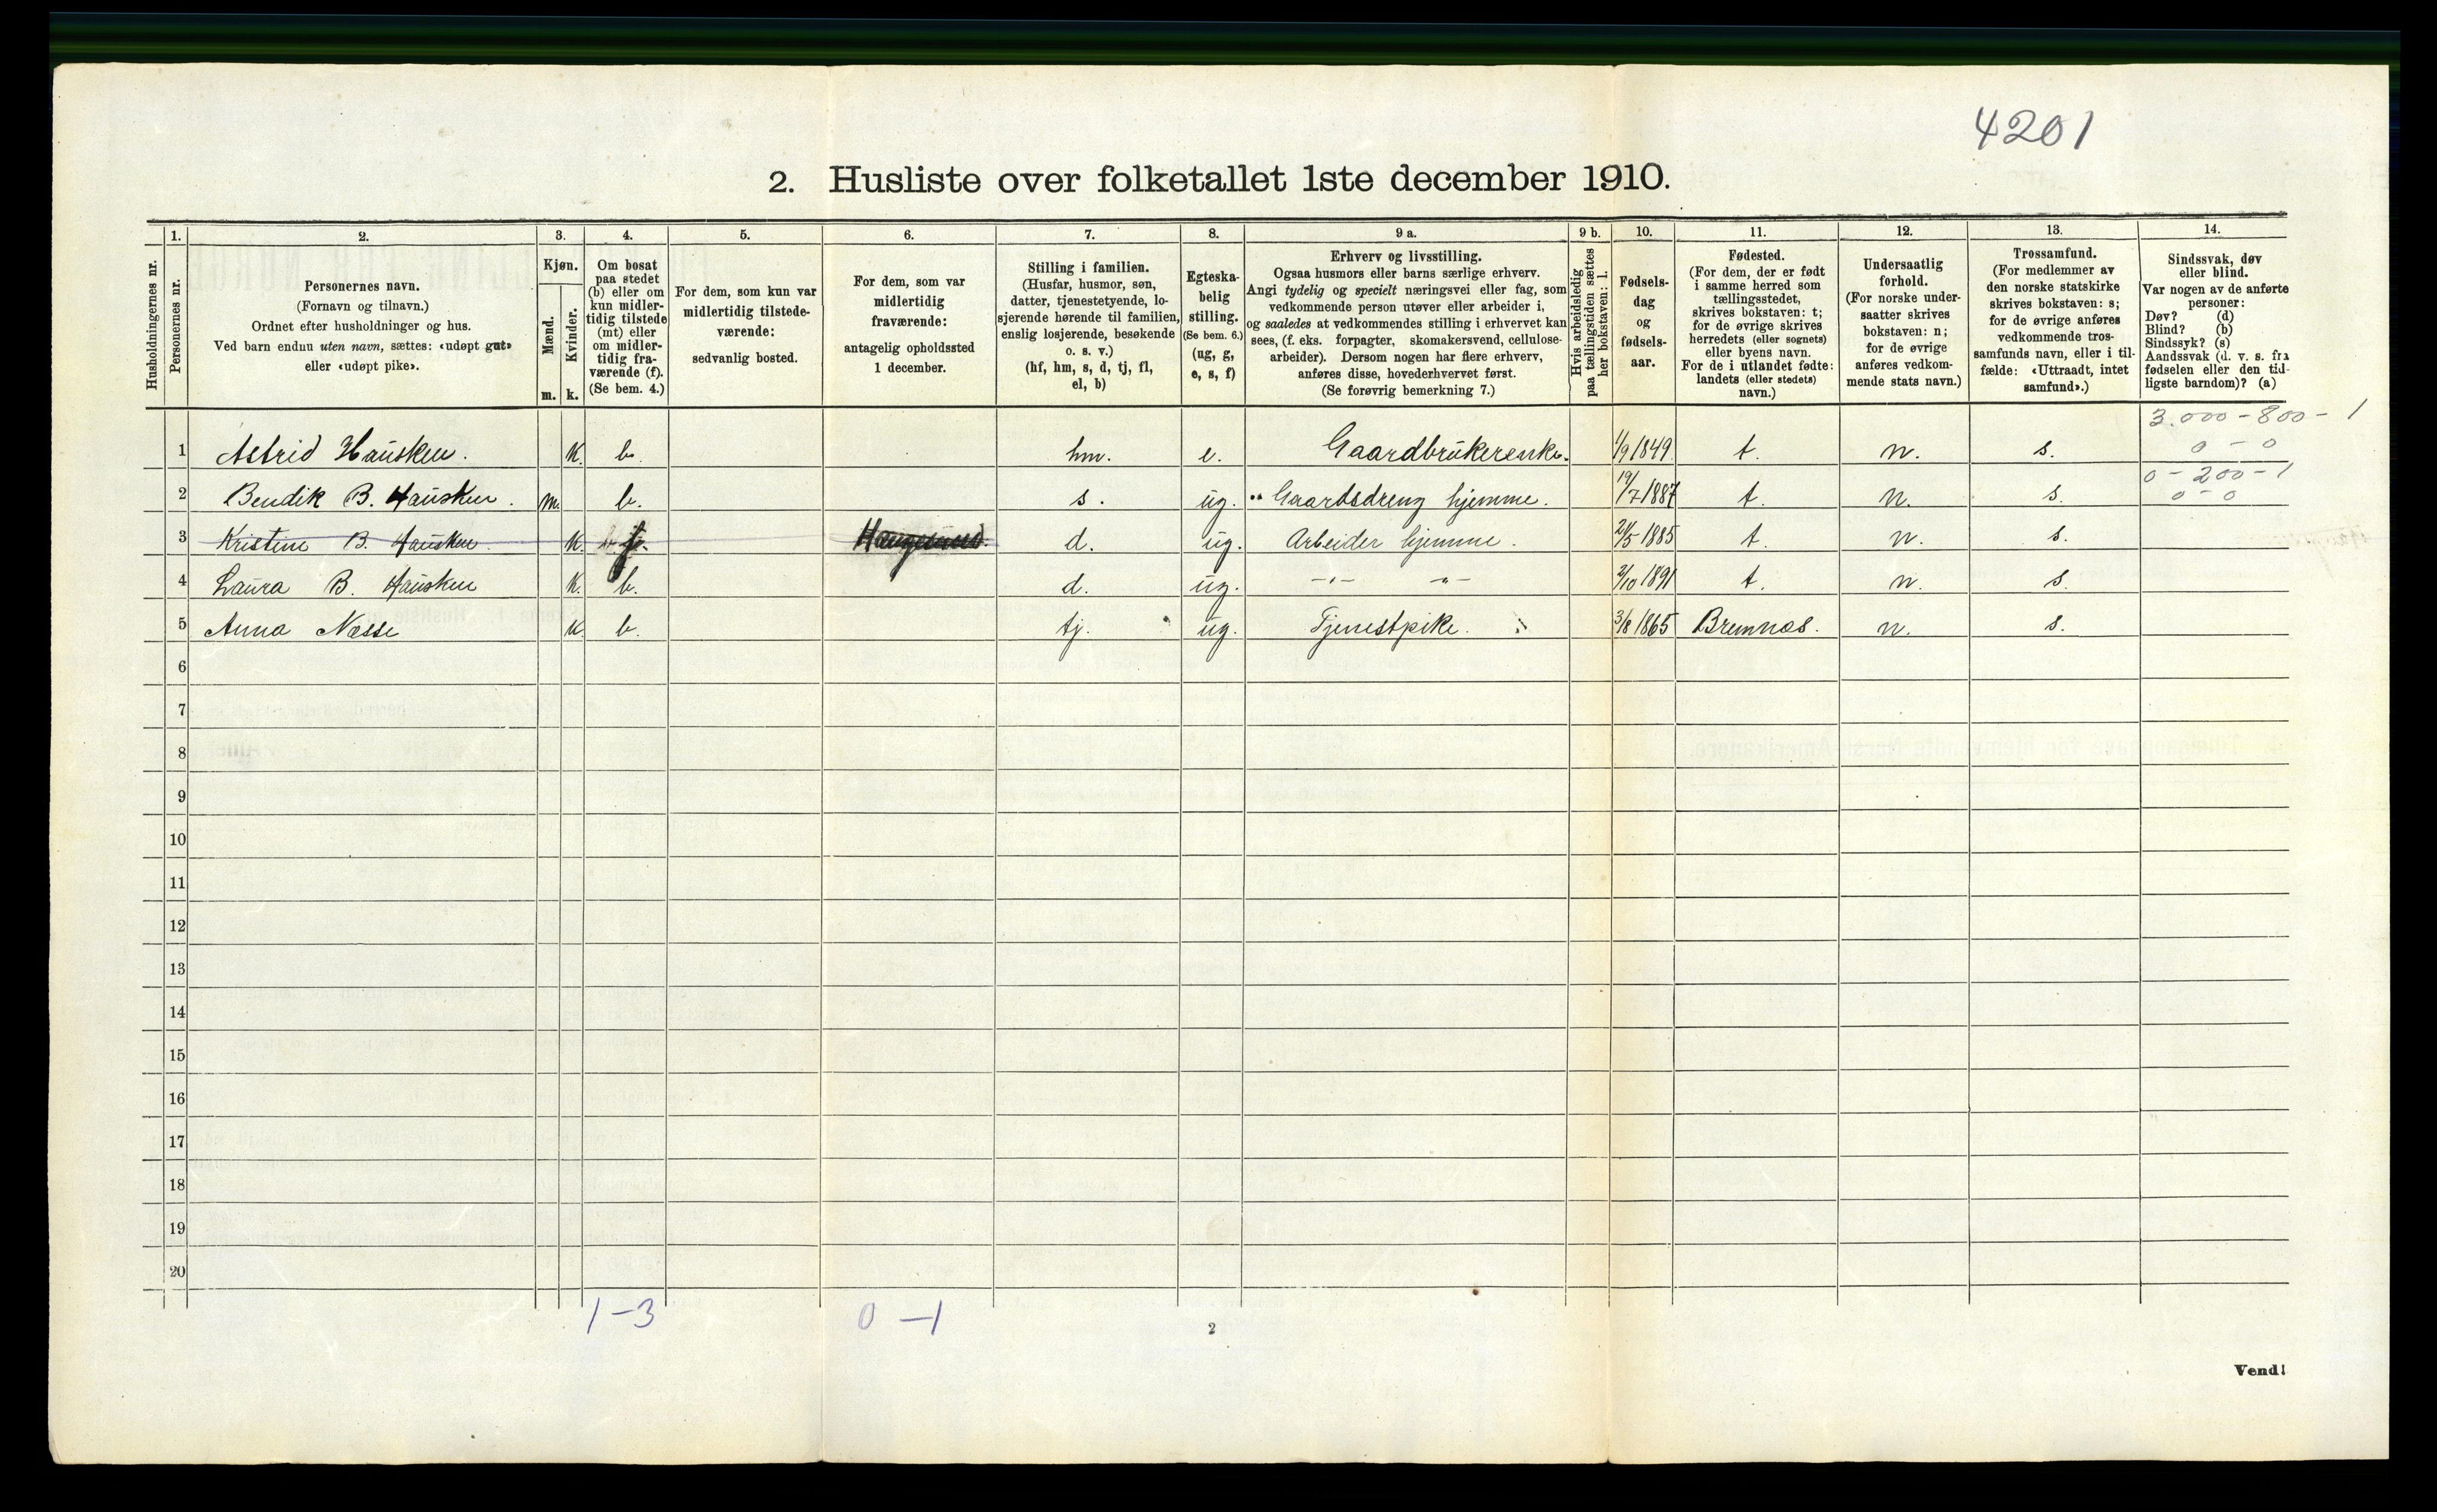 4201
2. Husliste over folketallet 1ste december 1910.
Husholdningernes nr.
1.
Personernes nr.
2.
Personernes navn.
(Fornavn og tilnavn.)
Ordnet efter husholdninger og hus.
Ved barn endnu uten navn, sættes: «udøpt gut»
eller «udøpt pike».
3.
Kjøn.
Mænd.
Kvinder.
m. k.
4.
Om bosat
paa stedet
(b) eller om
kun midler-
tidig tilstede
(mt) eller
om midler-
tidig fra-
værende (f).
(Se bem. 4.)
5.
For dem, som kun var
midlertidig tilstede-
værende:
sedvanlig bosted.
6.
For dem, som var
midlertidig
fraværende:
antagelig opholdssted
1 december.
7.
Stilling i familien.
(Husfar, husmor, søn,
datter, tjenestetyende, lo-
sjerende hørende til familien,
enslig losjerende, besøkende
o. s. v.)
(hf, hm, s, d, tj, fl,
el, b)
8.
Egteska-
belig
stilling.
(Se bem. 6.)
(ug, g,
e, s, f)
9 a.
Erhverv og livsstilling.
Ogsaa husmors eller barns særlige erhverv.
Angi tydelig og specielt næringsvei eller fag, som
vedkommende person utøver eller arbeider i,
og saaledes at vedkommendes stilling i erhvervet kan
sees, (f. eks. forpagter, skomakersvend, cellulose-
arbeider). Dersom nogen har flere erhverv,
anføres disse, hovederhvervet først.
(Se forøvrig bemerkning 7.)
9 b.
Hvis arbeidsledig
paa tællingstiden sættes
her bokstaven: l.
10.
Fødsels-
dag
og
fødsels-
aar.
11.
Fødested.
(For dem, der er født
i samme herred som
tællingsstedet,
skrives bokstaven: t;
for de øvrige skrives
herredets (eller sognets)
eller byens navn.
For de i utlandet fødte:
landets (eller stedets)
navn.)
12.
Undersaatlig
forhold.
(For norske under-
saatter skrives
bokstaven: n;
for de øvrige
anføres vedkom-
mende stats navn.)
13.
Trossamfund.
(For medlemmer av
den norske statskirke
skrives bokstaven: s;
for de øvrige anføres
vedkommende tros-
samfunds navn, eller i til-
fælde: «Uttraadt, intet
samfund».)
14.
Sindssvak, døv
eller blind.
Var nogen av de anførte
personer:
Døv? (d)
Blind? (b)
Sindssyk? (s)
Aandssvak (d. v. s. fra
fødselen eller den tid-
ligste barndom)? (a)
3.000 - 800 - 1
0 - 0
1 Astrid Hausken. K. b. hm. e. Gaardbrukerenke. 1/9 1849 t. n. s.
0 - 200 - 1
0 - 0
2 Bendik B. Hausken. m. b. s. ug. Gaardsdreng hjemme. 19/7 1887 t. n. s.
3 Kristine B. Hausken K. f. Haugesund. d. ug. Arbeider hjemme. 21/5 1885 t. n. s.
4 Laura B. Hausken K. b. d. ug. -"- -"- 2/10 1891 t. n. s.
5 Anna Næsse K. b. tj. ug. Tjenestpike. 3/8 1865 Bremnæs. n. s.
6
7
8
9
10
11
12
13
14
15
16
17
18
19
20
1 - 3
0 - 1
2
Vend!